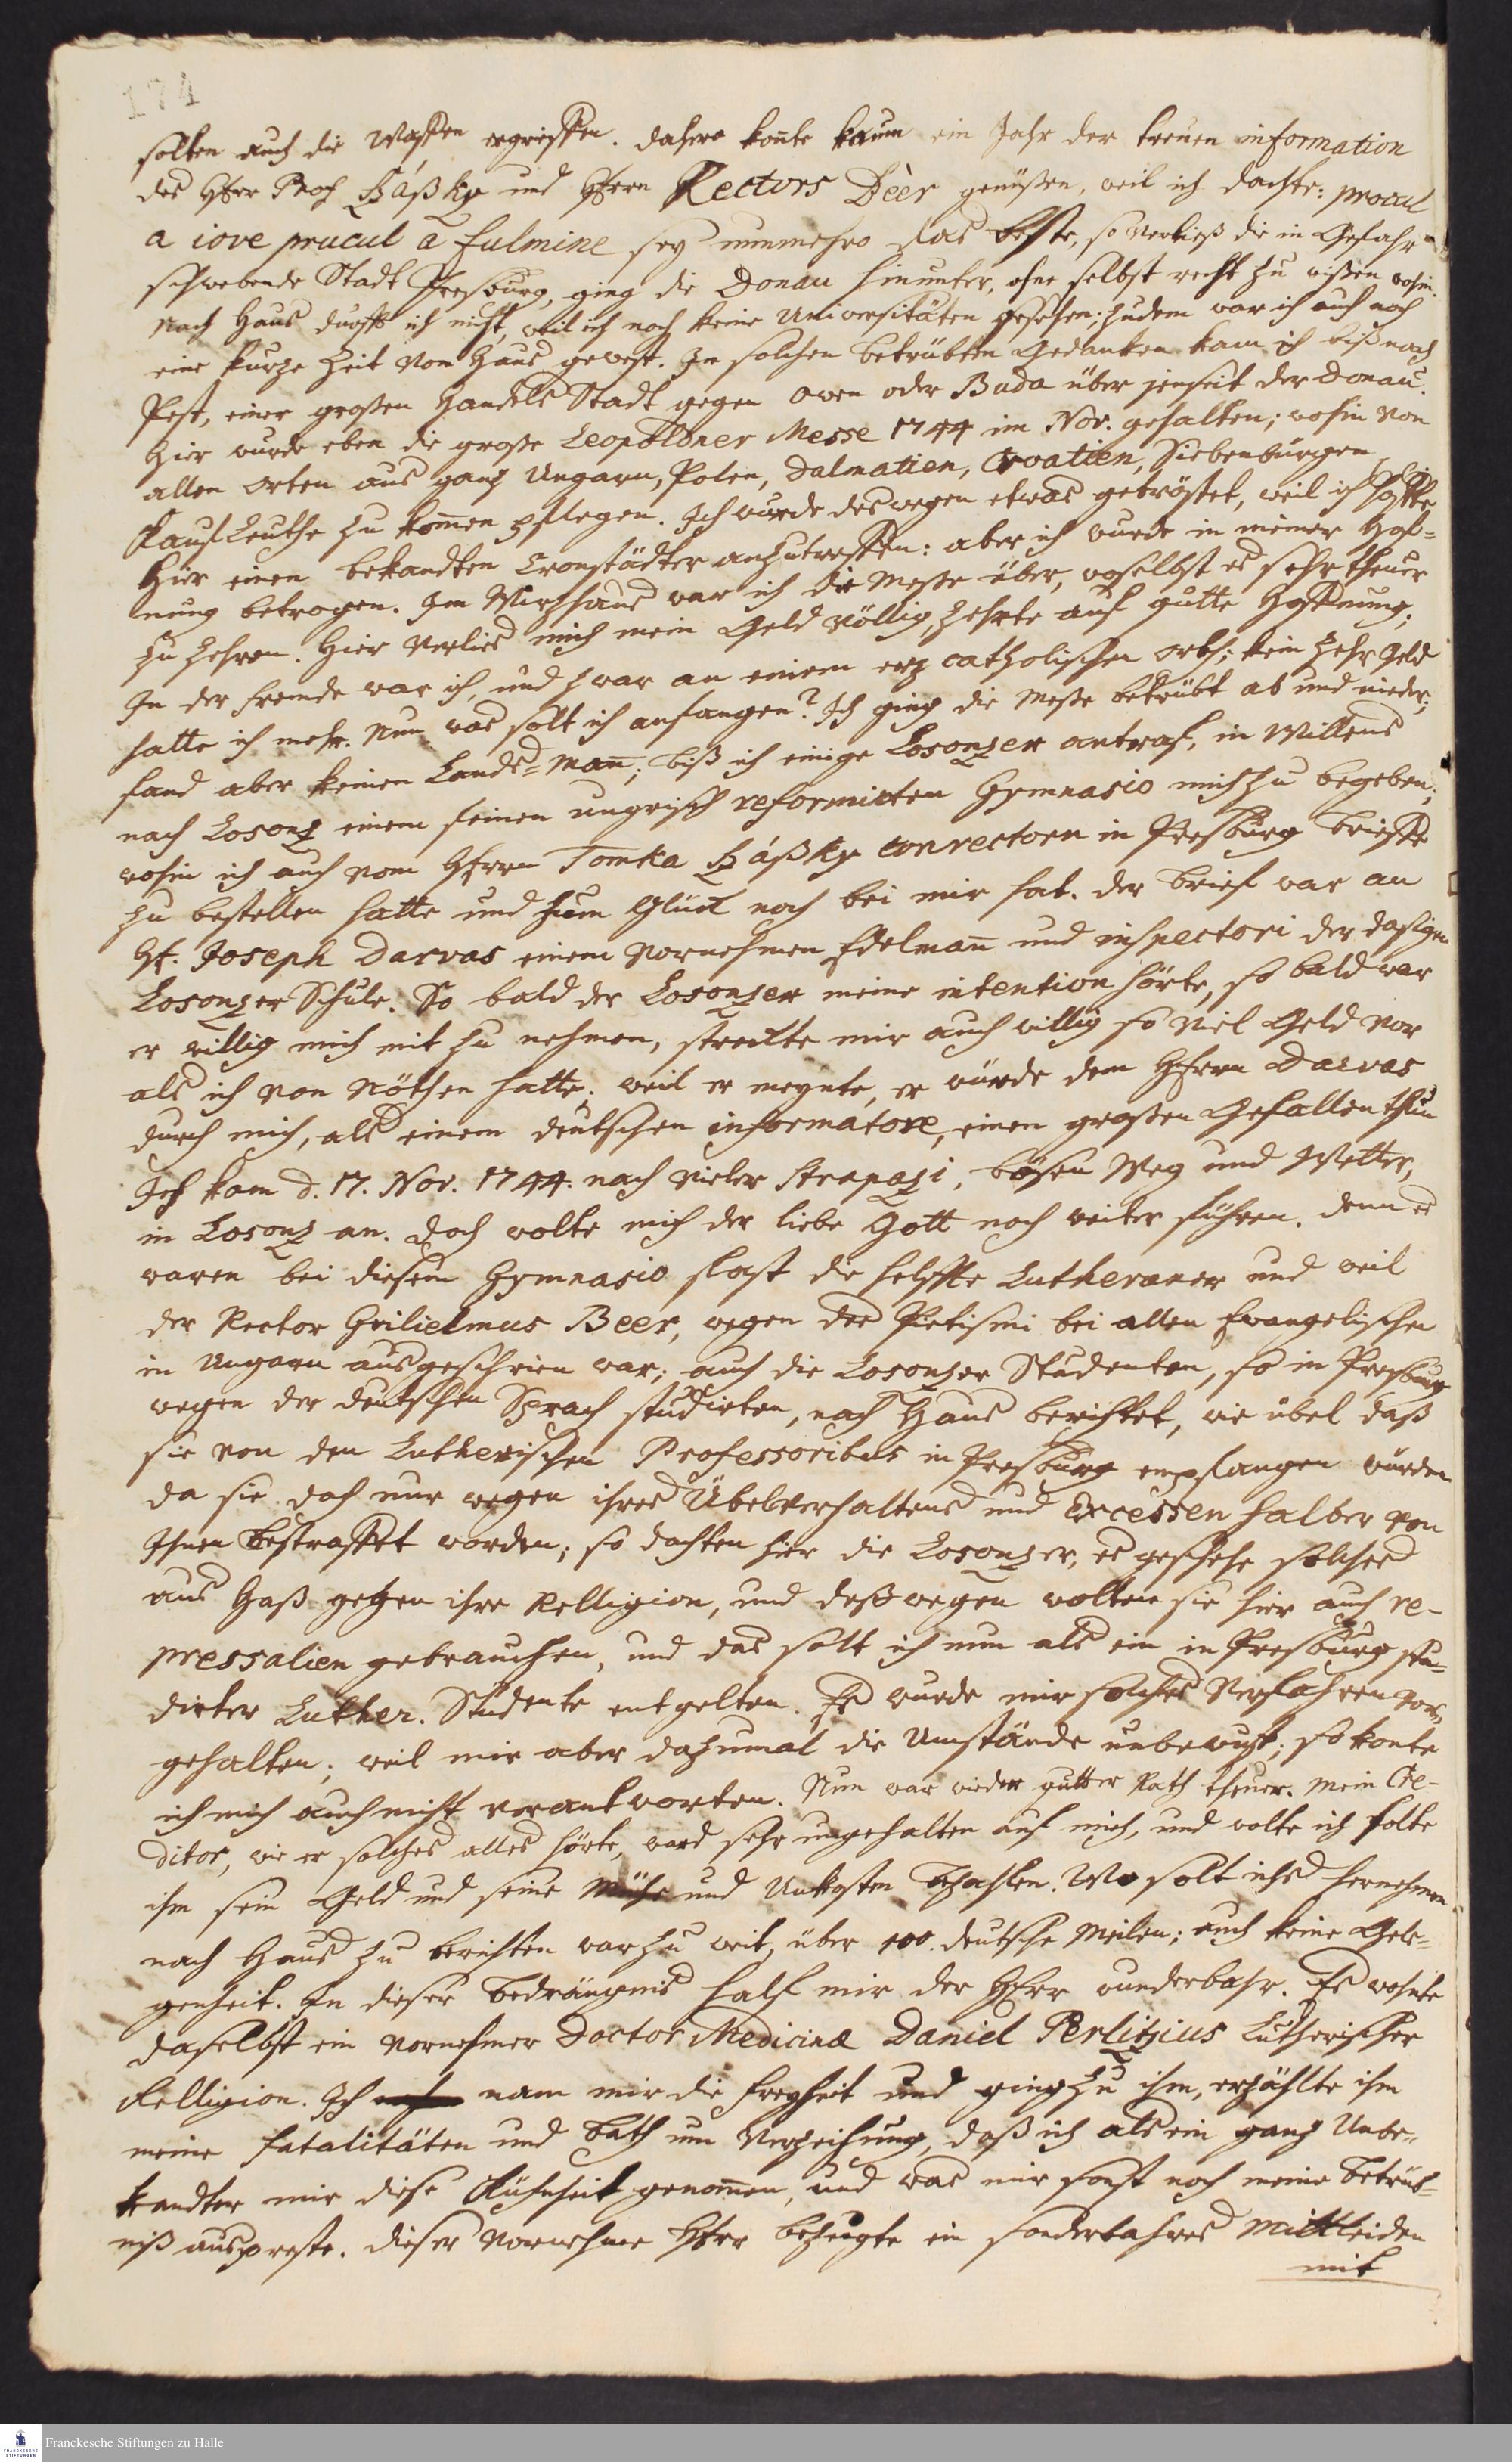 174
solten auch die Waffen ergreiffen. dahero konte kaum ein Jahr der treuen information
des Herr Prof Bäßky und Herrn Rectors Bèer genüßen, weil ich dachte: procul
a iove prucul a fulmine sey nunmehro das beste, so verließ die in Gefahr
schwebende Stadt Presburg, ging die Donau hinunter, ohne selbst recht zu wißen wohin.
Nach Haus durfft ich nicht, weil ich noch keine Universitäten gesehen; zudem war ich auch noch
eine kurze Zeit vom Haus gewest. In solchen betrübten Gedanken kam ich biß nach
Pest, einer großen Handels Stadt gegen Owen oder Buda über jenseit der Donau.
Hier wurde eben die große Leopoldner Messe 1744 im Nov. gehalten; wohin von
allen Orten aus ganz Ungarn, Polen, Dalmatien, Croatien, Siebenbürgen
Kauf Leuthe zu komen pflegen. Ich wurde deswegen etwas getröstet, weil ich hoffte
hier einen bekandten Cronstädter anzutreffen: aber ich wurde in meiner Hof-
nung betrogen. Im Wirzhaus war ich die Messe über, woselbst es sehr theuer
zu zehren. Hier verlies mich mein Geld völlig, zehrte auf gutte Hoffnung,
In der Fremde war ich, und zwar an einem erz catholischen Orth; kein Zehr Geld
hatte ich mehr. Nun was solt ich anfangen? Ich ging die Messe betrübt ab und nieder;
fand aber keinen Lands-Man; biß ich einige Losonzer antraf, in Willens
nach Losonz einem feinen ungrisch reformirten Gymnasio mich zu begeben;
wohin ich auch vom Herrn Tomka Bäßky Conrectorn in Presburg Brieffe
zu bestellen hatte und zum Glück noch bei mir hat. der Brief war an
H. Joseph Darvas einem vornehmen Edelman und inspectori der dasigen
Losonzer Schule. So bald der Losonzer meine intention hörte, so bald war
er willig mich mit zu nehmen, streckte mir auch willig so viel Geld vor
als ich von Nöthen hatte; weil er meynte, er würde dem Herrn Darvas
durch mich, als einem deutschen informatore, einen großen Gefallen thun
Ich kam d. 17. Nov. 1744. nach vieler Strapazi, bösen Weg und Wetter,
in Losonz an. Doch wolte mich der liebe Gott noch weiter führen. denn es
waren bei diesem Gymnasio fast die helffte Lutheraner und weil
der Rector Gvilielmus Beer, wegen des Pietismi bei allen Evangelischen
in Ungarn ausgeschrien war; auch die Losonzer Studenten, so in Presburg
wegen der deutschen Sprach studirten, nach Haus berichtet, wie übel daß
sie von den Lutherischen Professoribus in Presburg empfangen würden
da sie doch nur wegen ihres Übelverhaltens und Excessen halber von
Ihnen bestraffet worden; so dachten hier die Losonzer, es geschehe solches
aus Haß gegen ihre Relligion, und deßwegen wolten sie hier auch re-
pressalien gebrauchen, und das solt ich nun als ein in Presburg stu-
dirter Luther. Studente entgelten. Es wurde mir solches Verfahren vor-
gehalten; weil mir aber dazumal die Umstände unbewust; so konte
ich mich auch nicht verantworten. Nun war wieder gutter Rath theuer. Mein Cre-
ditor, wie er solches alles hörte, ward sehr ungehalten auf mich, und wolte ich solte
ihm sein Geld und seine Mühe und Unkosten bezahlen. Wo solt ichs hernehmen
nach Haus zu berichten war zu weit, über 100. deutsche Meilen; auch keine Gele-
genheit. In dieser Bedrängnis half mir der Herr wunderbahr. Es wohnte
daselbst ein vornehmer Doctor Medicinæ Daniel Perlizius Lutherischer
Relligion. Ich nam mir die Freyheit und ging zu ihm, erzählte ihm
meine Fatalitäten und bath um Verzeihung, daß ich als ein ganz Unbe-
kandter mir diese Kühnheit genomen, und was mir sonst noch meine Betrüb-
niß auspreste. dieser vornehme Herr bezeugte ein sonderbahres Mittleiden
mit
Franckesche Stiftungen zu Halle